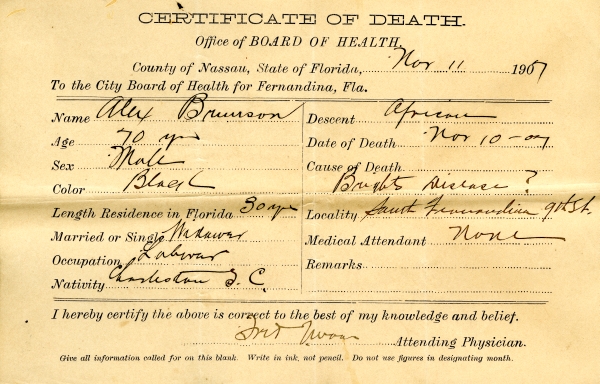 CERTIFICATE OF DEATH.
Office of BOARD OF HEALTH,
County of Nassau, State of Florida, Nov 11 1907
To the City Board of Health for Fernandina, Fla.
Name Alex Brunson
Age 70 yrs
Sex Male
Color Black
Length Residence in Florida 30 yrs
Married or Single Widower
Occupation Laborer
Nativity Charleston S. C.
Descent African
Date of Death Nov 10-07
Cause of Death
Brights Disease ?
Locality South Fernandina 9th St.
Medical Attendant None
Remarks
I hereby certify the above is correct to the best of my knowledge and belief.
Attending Physician.
Give all information called for on this blank. Write in ink, not pencil. Do not use figures in designating month.